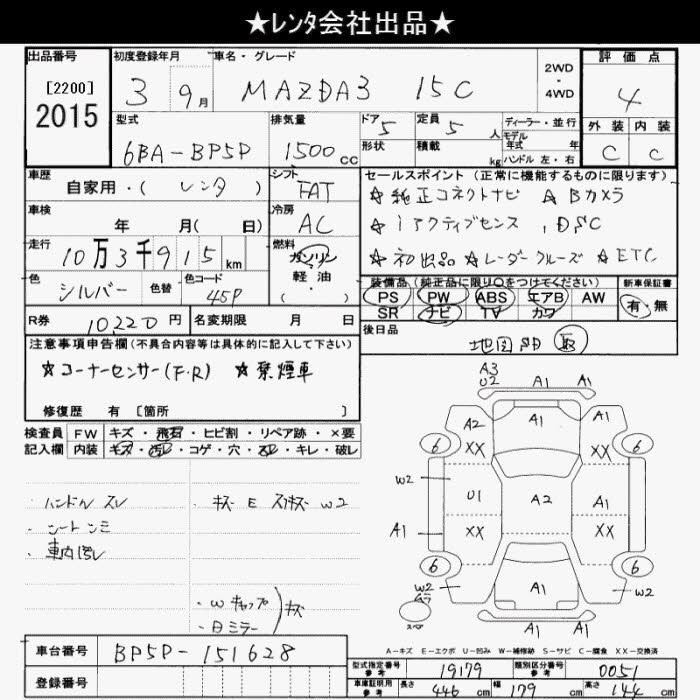 ★レンタ会社出品★
出品番号 初度登録年月 車名・グレード 評価点
[2200]
2015
3 9月 MAZDA3 15C 2WD・4WD 4
外装 内装
C C
型式 排気量 ドア 定員 ディーラー・並行
6BA-BP5P 1500cc 5 5人 モデル年式 年
形状 積載 kg ハンドル 左・右
車歴 シフト セールスポイント(正常に機能するものに限ります)
自家用・(レンタ) FAT ★純正コネクトナビ ★Bカメラ
車検 冷房
年 月(日) AC ★iアクティブセンス , DSC
走行 燃料
10万3千915km ガソリン ★初出品 ★レーダークルーズ ★ETC
軽油
色 色替 色コード 装備品(純正品に限り○をつけてください) 新車保証書
シルバー 45P PS PW ABS エアB AW 有・無
SR ナビ TV カワ
R券 10220円 名変期限 月 日 後日品
地図 取
注意事項申告欄(不具合内容等は具体的に記入して下さい)
★コーナーセンサー(F.R) ★禁煙車
修復歴 有 [箇所 ]
検査員 FW キズ・飛石・ヒビ割・リペア跡・×要
記入欄 内装 キズ・汚れ・コゲ・穴・スレ・キレ・破レ
・ハンドル スレ ・キズ E スリキズ W2
・シートシミ
・車内汚レ
・Wキャップ
・Bミラー
キズ
A3
U2 A1 A1
A2 A1 A1
6 XX XX 6
W2
U1 A2 A1
A1 XX XX
6 6
W2 A1 W2
スペア A1 A1
A-キズ E-エクボ U-凹み W-補修跡 S-サビ C-腐食 XX-交換済
車台番号 BP5P-151628
登録番号
型式指定番号 参考 19179 類別区分番号 参考 0051
車庫証明用 参考 長さ 446cm 幅 179cm 高さ 144cm